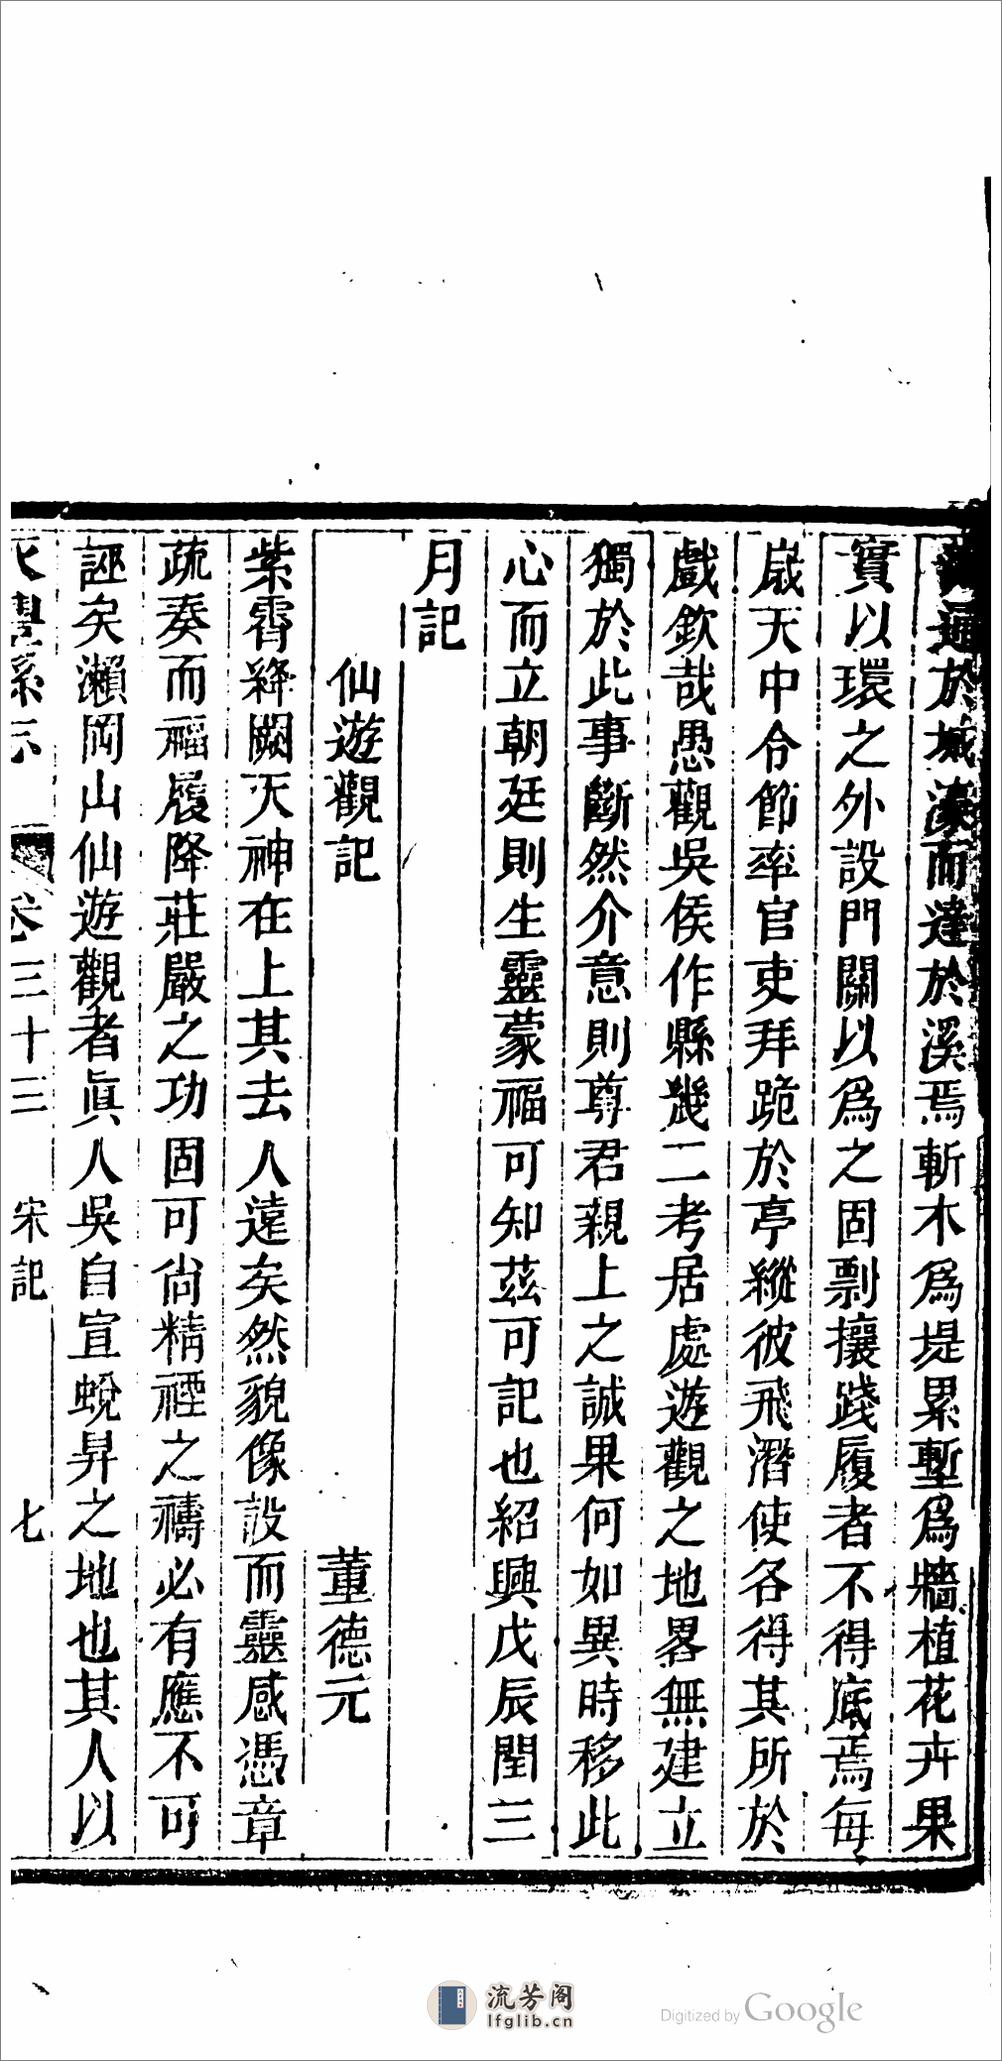 通於城濠而達於溪焉斬木爲堤累塹爲牆植花卉果
實以環之外設門關以爲之固剽攘踐履者不得底焉每
歲天中令節率官吏拜跪於亭縱彼飛潛使各得其所於
戲欽哉愚觀吳侯作縣幾二考居處遊觀之地畧無建立
獨於此事斷然介意則尊君親上之誠果何如異時移此
心而立朝廷則生靈蒙福可知茲可記也紹興戊辰閏三
月記
仙遊觀記 董德元
紫霄絳闕天神在上其去人遠矣然貌像設而靈感憑章
疏奏而福履降莊嚴之功固可尙精禋之禱必有應不可
誣矣瀨岡山仙遊觀者眞人吳自宣蛻昇之地也其人以
縣示 卷三十三 宋記 七
流芳阁
lfglib.cn
Digitized by Google